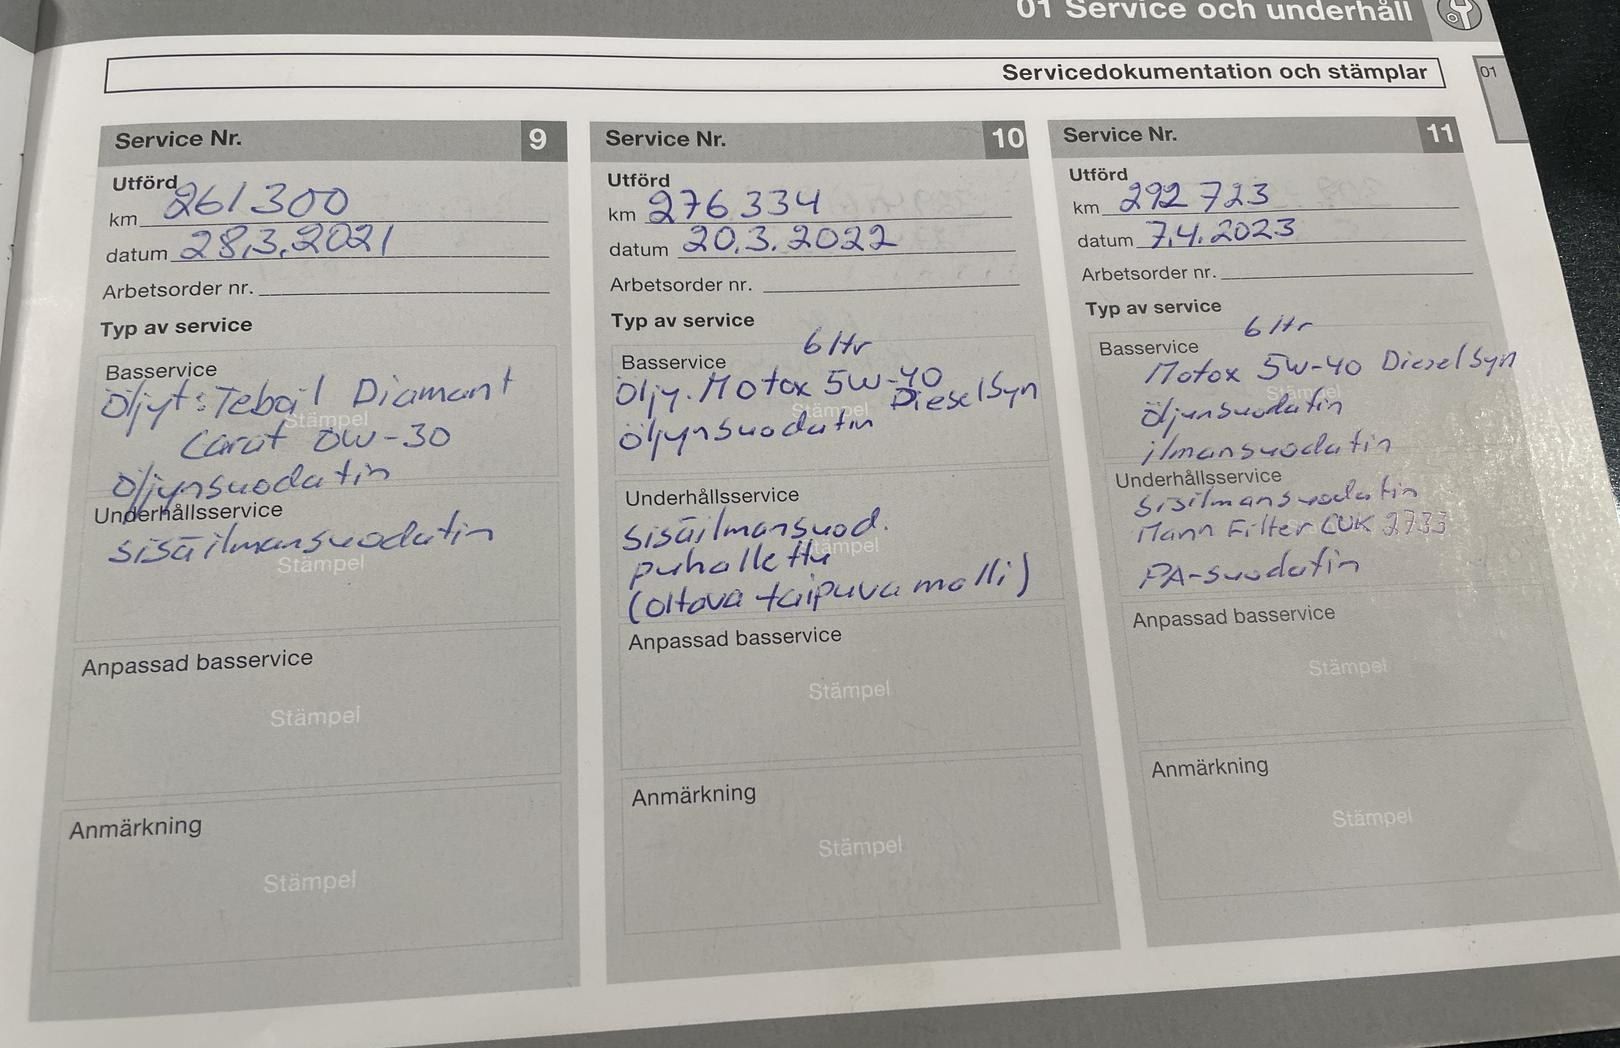 01 Service och underhåll
Servicedokumentation och stämplar
01
Service Nr. 9
Utförd
km 261300
datum 28.3.2021
Arbetsorder nr.
Typ av service
Basservice
Öljyt: Teboil Diamant
Stämpel
Carat 0W-30
Öljynsuodatin
Underhållsservice
sisäilmansuodatin
Stämpel
Anpassad basservice
Stämpel
Anmärkning
Stämpel
Service Nr. 10
Utförd
km 276334
datum 20.3.2022
Arbetsorder nr.
Typ av service
6 ltr
Basservice
Öljy. Motox 5W-40
DieselSyn
Stämpel
öljynsuodatin
Underhållsservice
sisäilmansuod.
Stämpel
puhallettu
(oltava taipuva malli)
Anpassad basservice
Stämpel
Anmärkning
Stämpel
Service Nr. 11
Utförd
km 292723
datum 7.4.2023
Arbetsorder nr.
Typ av service
6 ltr
Basservice
Motox 5W-40 DieselSyn
Stämpel
öljynsuodatin
ilmansuodatin
Underhållsservice
sisilmansuodatin
Mann Filter CUK 2733
PA-suodatin
Anpassad basservice
Stämpel
Anmärkning
Stämpel